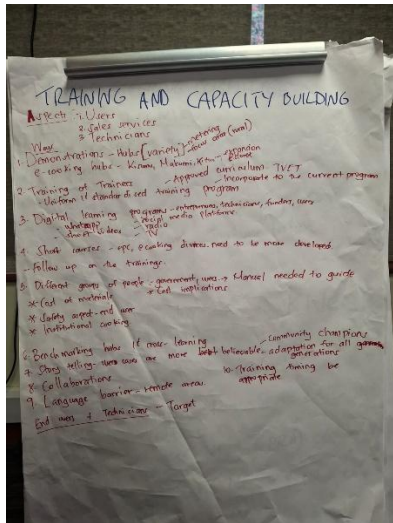 TRAINING AND CAPACITY BUILDING
Aspect: 1. Users
2. Sales services
3. Technicians
Way
1. Demonstrations - Hubs [variety] - metering
- focus area (rural)
e-cooking hubs - Kisumu, Makueni, Kitui - expansion
2. Training of Trainers - Approved curriculum TVET
- Uniform & standardised training program - Incorporate to the current program
3. Digital learning programs - entrepreneurs, technicians, funders, users
- whatsapp - social media platforms
- short videos - radio
- TV
4. Short courses - epc, ecooking devices need to be more developed
- Follow up on the trainings.
5. Different groups of people - government, users → Manual needed to guide
* Cost of materials * Cost implications
* Safety aspect - end user
* Institutional cooking
6. Benchmarking hubs & cross-learning - Community champions
7. Story telling - users are more believable - adaptation for all generations
8. Collaborations 10. Training timing be appropriate
9. Language barrier - remote areas
End users & Technicians - Target